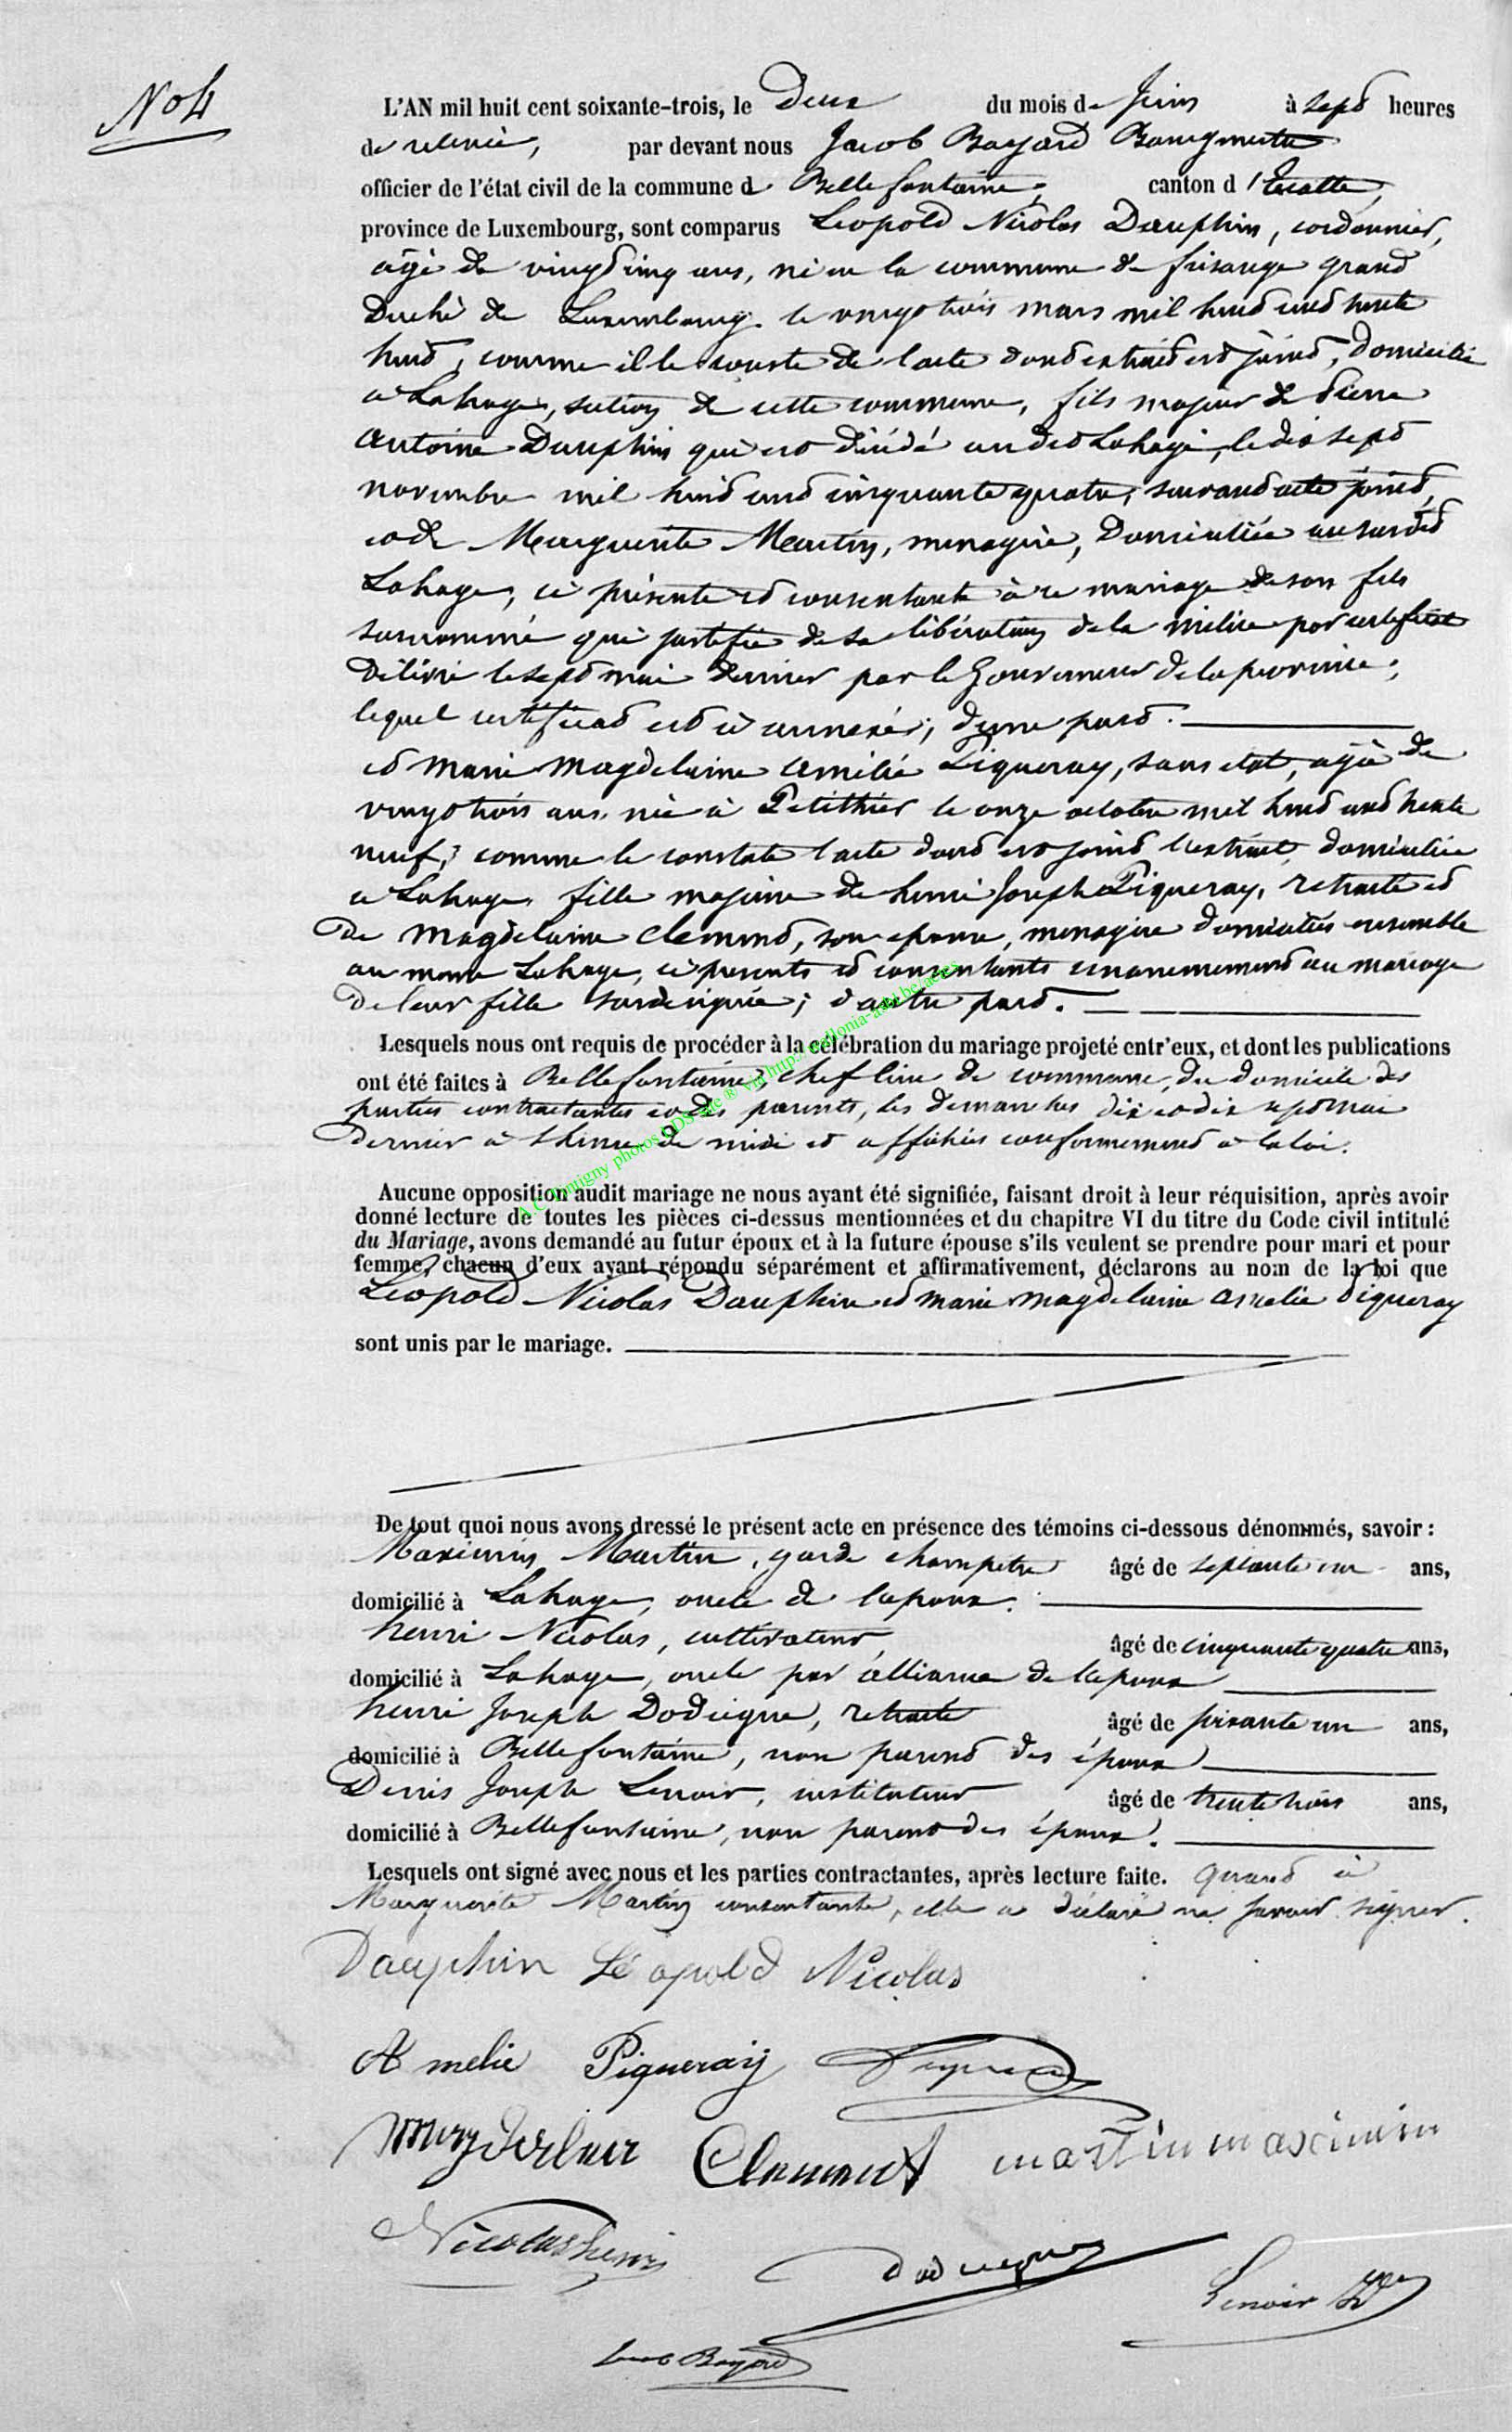 No 4
L'AN mil huit cent soixante-trois, le deux du mois de Juin à sept heures
de relevée, par devant nous Jacob Bayard Bourgmestre
officier de l'état civil de la commune de Bellefontaine, canton d'Etalle,
province de Luxembourg, sont comparus Léopold Nicolas Dauphin, cordonnier,
âgé de vingt cinq ans, né en la commune de frisange grand
Duché de Luxembourg le vingt trois mars mil huit cent trente
huit, comme il le conste de l'acte dont extrait est joint, domicilié
à Lahage, section de cette commune, fils majeur de Pierre
Antoine Dauphin qui est décédé audit Lahage, le dix sept
novembre mil huit cent cinquante quatre, suivant acte joint,
et de Marguerite Martin, menagère, domiciliée au surdit
Lahage, ci présente et consentante à ce mariage de son fils
surnommé qui justifie de sa libération de la milice par certificat
délivré le sept mai dernier par le Gouverneur de la province,
lequel certificat est ci annexé; d'une part.
et Marie Magdelaine Amélie Piqueray, sans etat, agée de
vingt trois ans, née à Petithier le onze octobre mil huit cent trente
neuf, comme le constate l'acte dont est joint l'extrait, domiciliée
à Lahage, fille majeure de henri Joseph Piqueray, retraité et
de Magdelaine Clement, son epouse, menagère domiciliés ensemble
au meme Lahage, ci presents et consentants unanimement au mariage
de leur fille surdesignée; d'autre part.
Lesquels nous ont requis de procéder à la célébration du mariage projeté entr'eux, et dont les publications
ont été faites à Bellefontaine, chef lieu de commune, du domicile des
parties contractantes et des parents, les dimanches dix et dix sept mai
dernier à l'heure de midi et affichées conformement à la loi.
A.C. Tintigny photos LDS site ® via http://wallonia-asbl.be/actes
Aucune opposition audit mariage ne nous ayant été signifiée, faisant droit à leur réquisition, après avoir
donné lecture de toutes les pièces ci-dessus mentionnées et du chapitre VI du titre du Code civil intitulé
du Mariage, avons demandé au futur époux et à la future épouse s'ils veulent se prendre pour mari et pour
femme, chacun d'eux ayant répondu séparément et affirmativement, déclarons au nom de la loi que
Léopold Nicolas Dauphin et Marie Magdelaine Amelie Piqueray
sont unis par le mariage.
De tout quoi nous avons dressé le présent acte en présence des témoins ci-dessous dénommés, savoir :
Maximin Martin, garde champetre âgé de septante un ans,
domicilié à Lahage, oncle de l'epoux.
henri Nicolas, cultivateur, âgé de cinquante quatre ans,
domicilié à Lahage, oncle par alliance de l'epoux
henri Joseph Dodeigne, retraité âgé de soixante un ans,
domicilié à Bellefontaine, non parent des époux
Denis Joseph Lenoir, instituteur âgé de trente trois ans,
domicilié à Bellefontaine, non parent des époux.
Lesquels ont signé avec nous et les parties contractantes, après lecture faite. quand à
Marguerite Martin consentante, elle a déclaré ne savoir signer.
Dauphin Léopold Nicolas
Amelie Piqueray
Clement martin maximin
Nicolas henri
Lenoir
Bayard